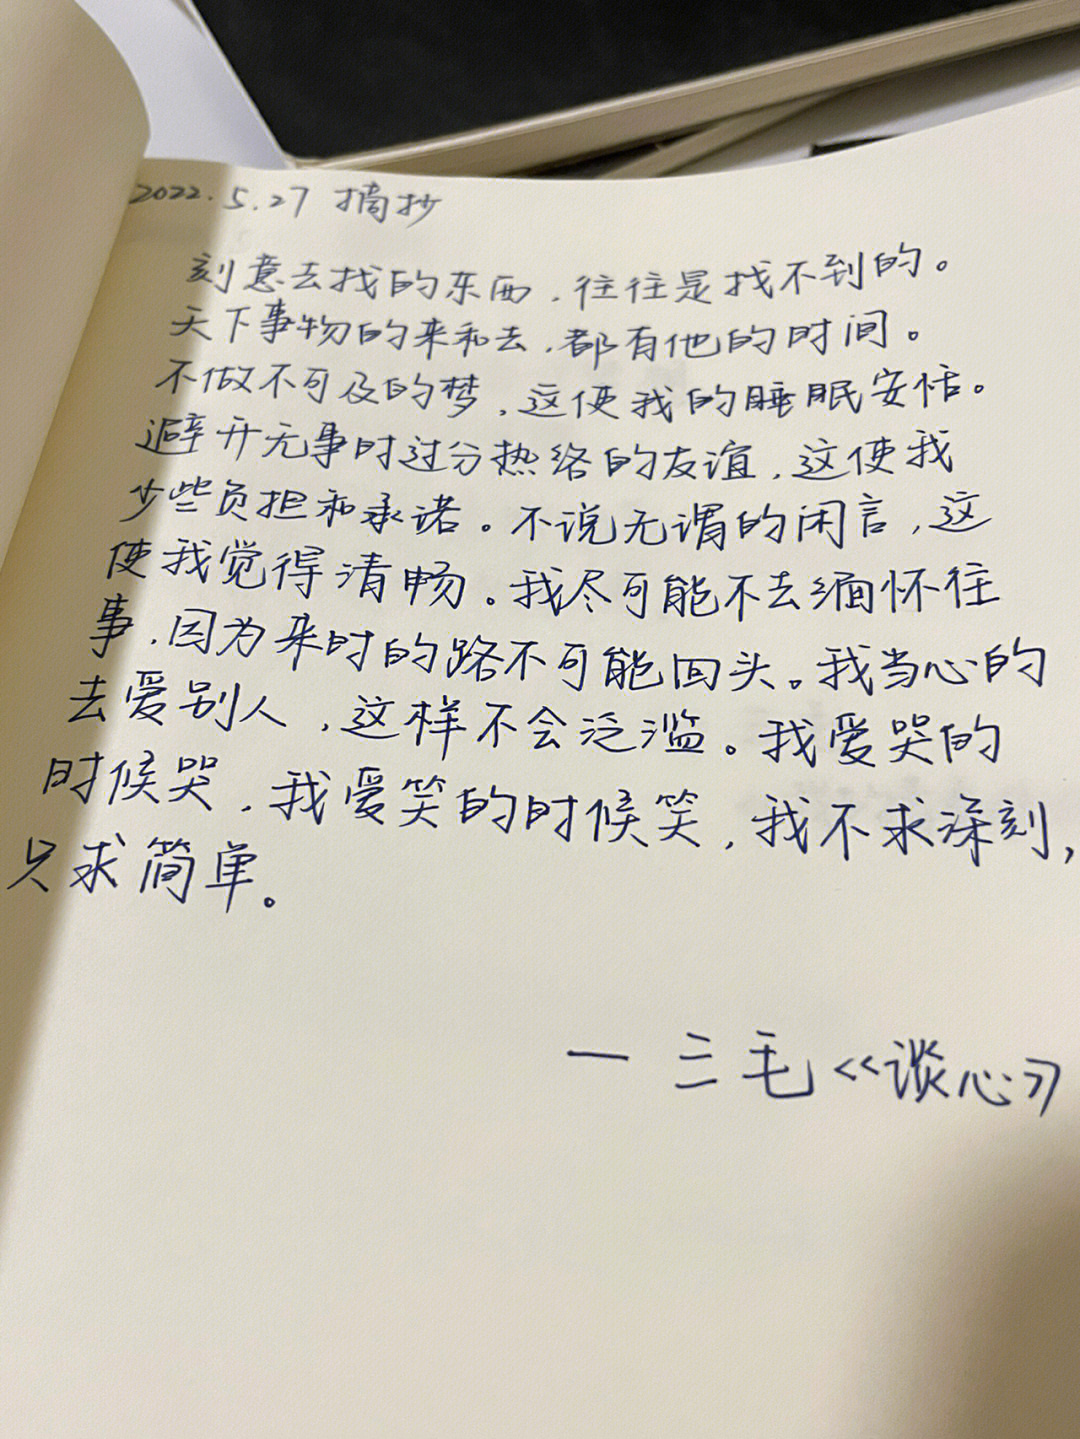 2022.5.27 摘抄
刻意去找的东西,往往是找不到的。
天下事物的来和去,都有他的时间。
不做不可及的梦,这使我的睡眠安恬。
避开无事时过分热络的友谊,这使我
少些负担和承诺。不说无谓的闲言,这
使我觉得清畅。我尽可能不去缅怀往
事,因为来时的路不可能回头。我当心的
去爱别人,这样不会泛滥。我爱哭的
时候哭,我爱笑的时候笑,我不求深刻,
只求简单。
— 三毛《谈心》